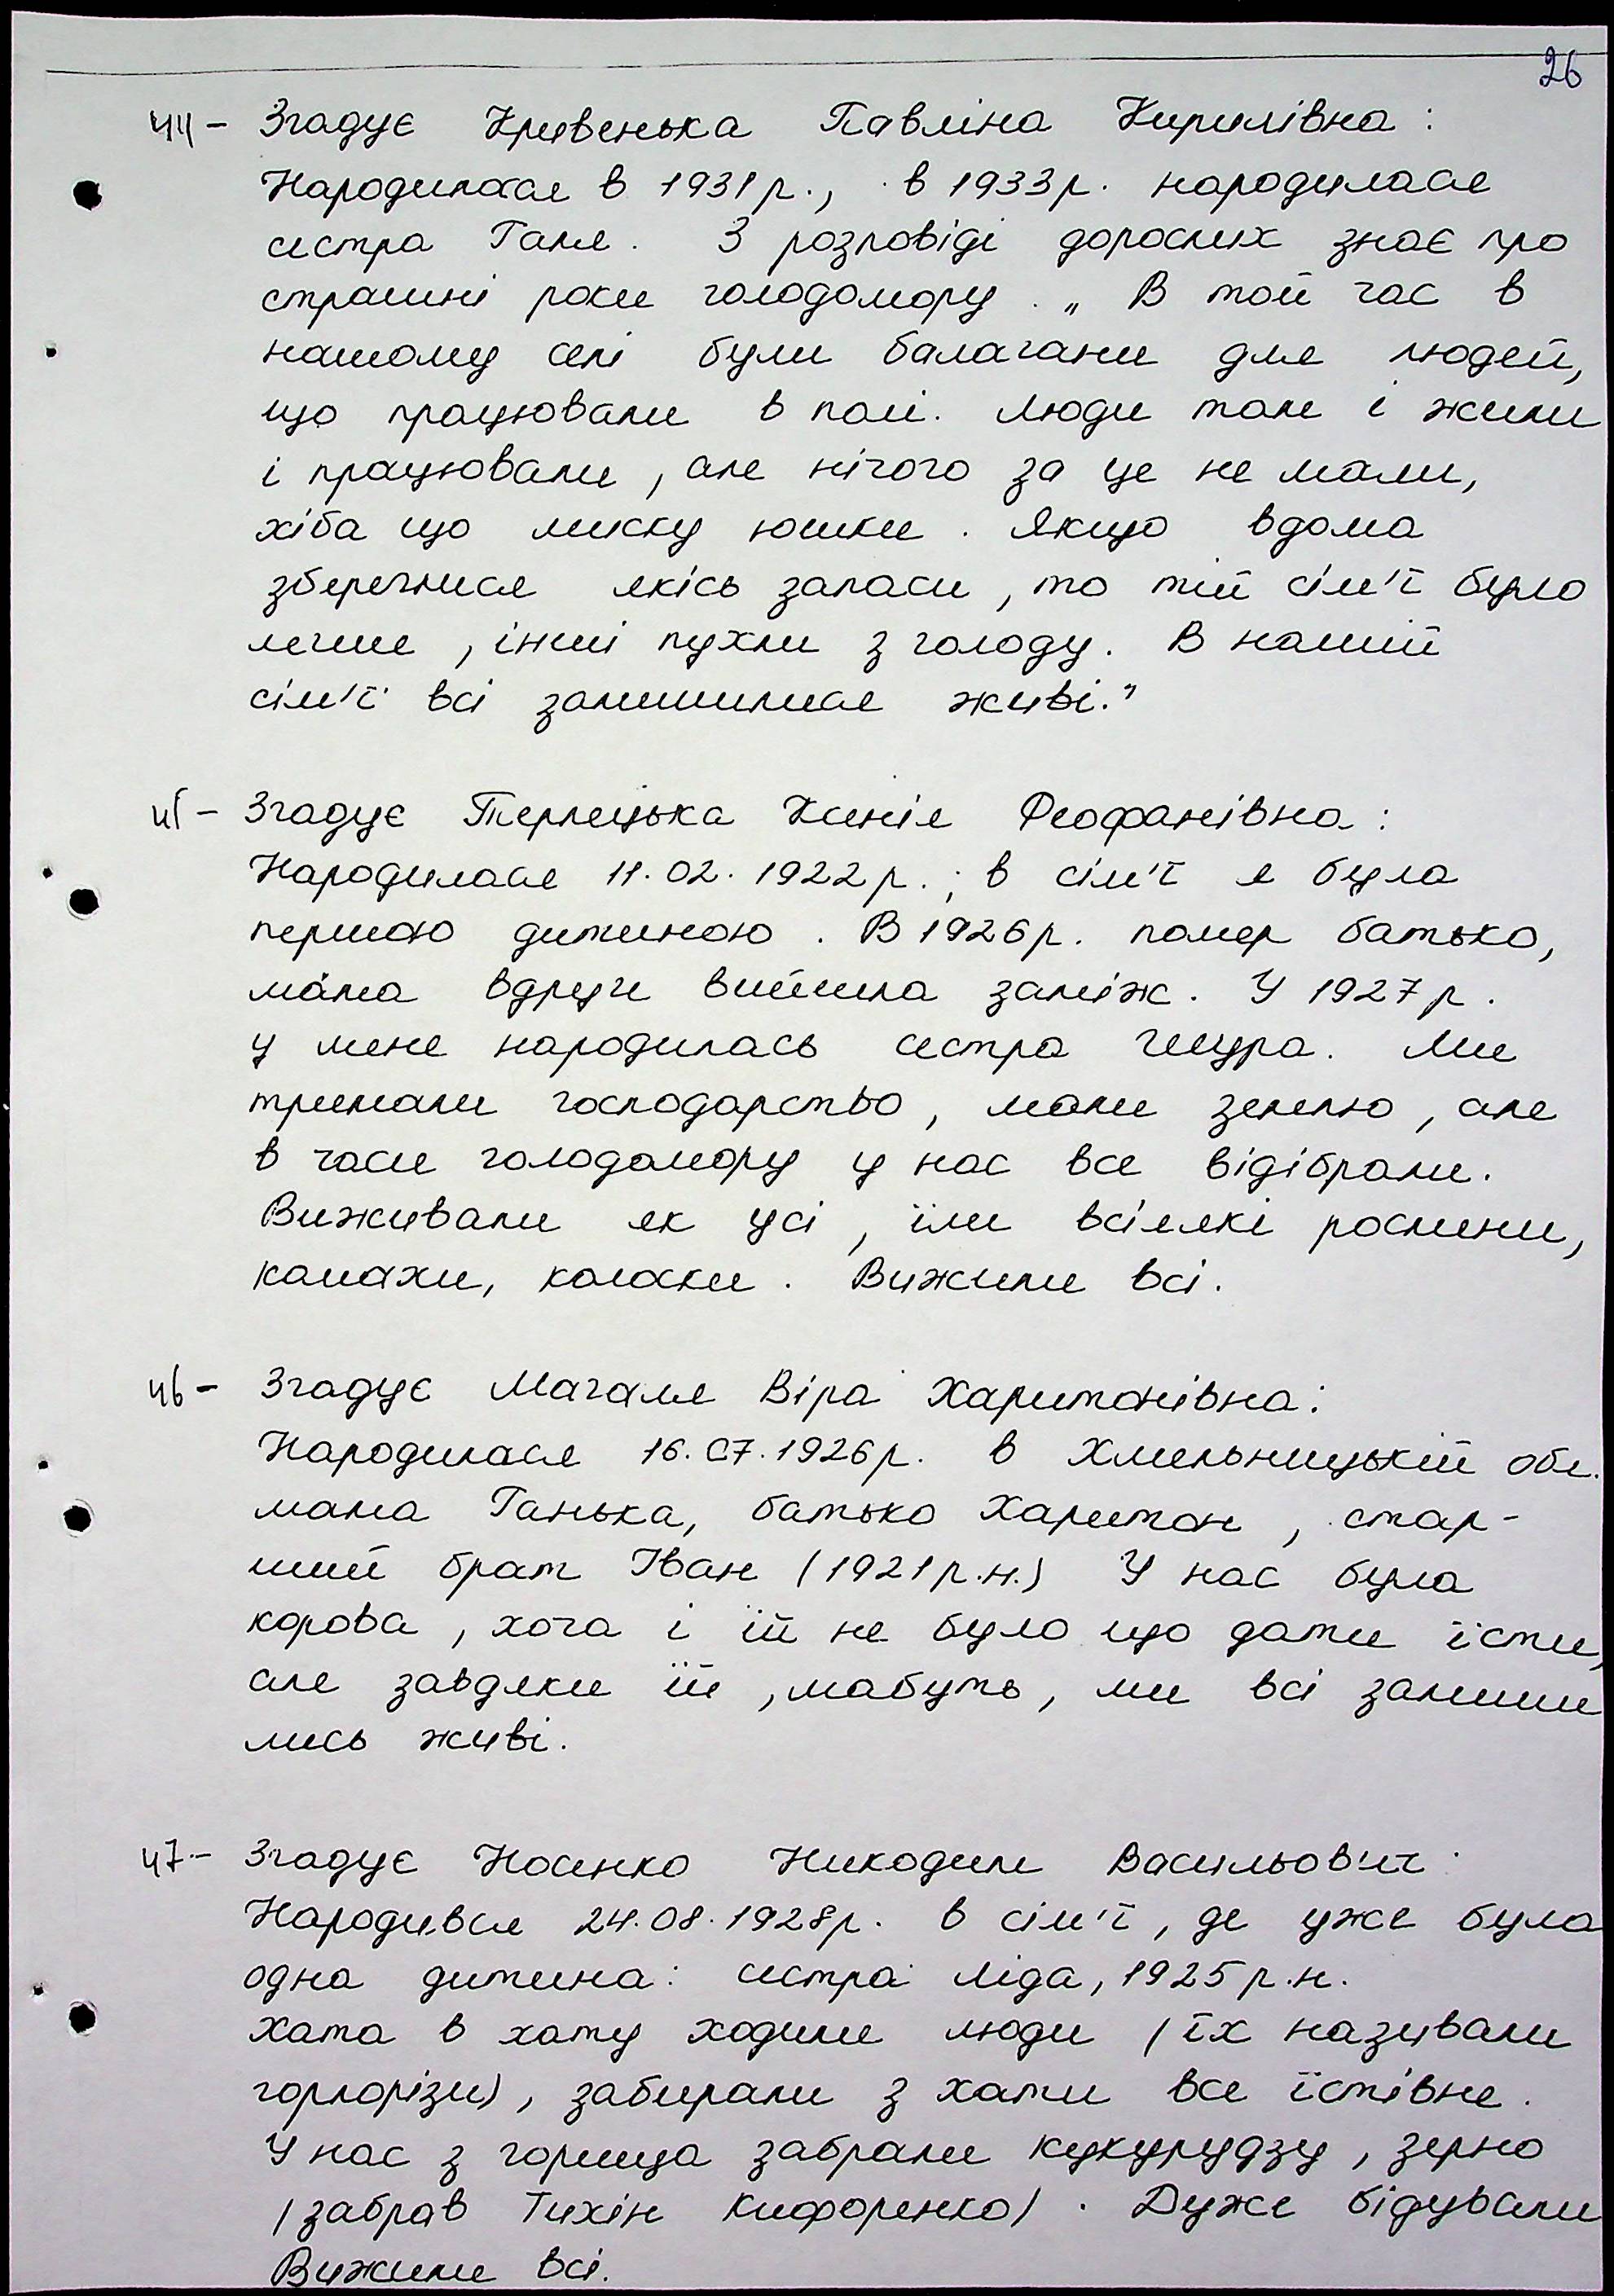 26
44 - Згадує Кривенька Павліна Кирилівна :
Народилася в 1931 р., в 1933 р. народилася
сестра Галя. З розповіді дорослих знає про
страшні роки голодомору. „ В той час в
нашому селі були балагани для людей,
що працювали в полі. Люди там і жили
і працювали, але нічого за це не мали,
хіба що миску юшки. Якщо вдома
збереглися якісь запаси, то тій сім'ї було
легше, інші пухли з голоду. В нашій
сім'ї всі залишилися живі."
45 - Згадує Терлецька Ксенія Феофанівна :
Народилася 11.02.1922 р.; в сім'ї я була
першою дитиною. В 1926 р. помер батько,
мама вдруге вийшла заміж. У 1927 р.
у мене народилась сестра Шура. Ми
тримали господарство, мали землю, але
в часи голодомору у нас все відібрали.
Виживали як усі, їли всілякі рослини,
комахи, колоски. Вижили всі.
46 - Згадує Магаля Віра Харитонівна :
Народилася 16.07.1926 р. в Хмельницькій обл.
мама Ганька, батько Харитон, стар-
ший брат Іван (1921 р.н.) У нас була
корова, хоча і їй не було що дати їсти,
але завдяки їй, мабуть, ми всі залиши
лись живі.
47 - Згадує Носенко Никодим Васильович :
Народився 24.08.1928 р. в сім'ї, де уже була
одна дитина: сестра Ліда, 1925 р.н.
Хата в хату ходили люди (їх називали
горлорізи), забирали з хати все їстівне.
У нас з горища забрали кукурудзу, зерно
(забрав Тихін Кифоренко). Дуже бідували
Вижили всі.